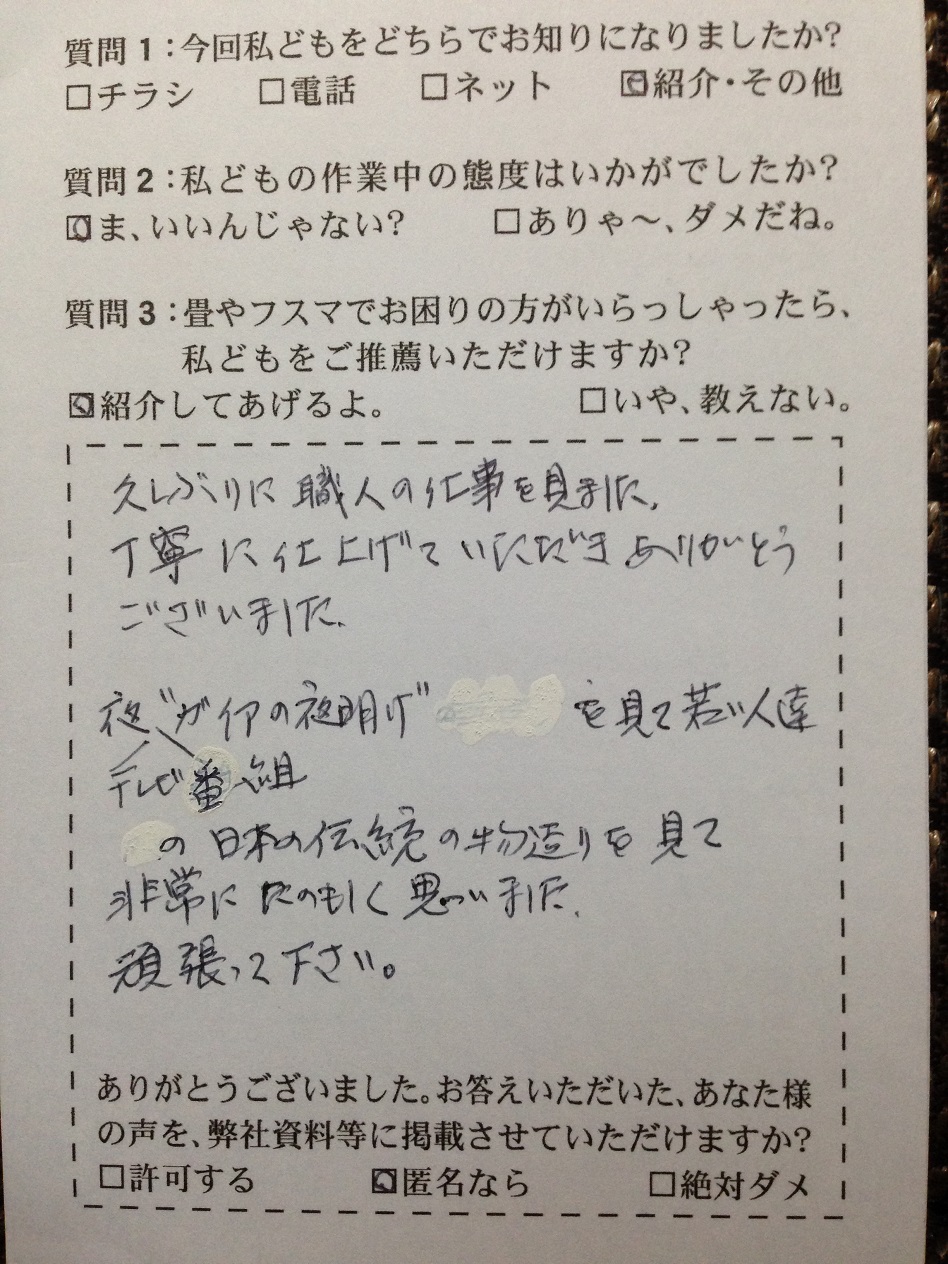 質問1:今回私どもをどちらでお知りになりましたか?
□チラシ □電話 □ネット ☑紹介・その他
質問2:私どもの作業中の態度はいかがでしたか?
☑ま、いいんじゃない? □ありゃ〜、ダメだね。
質問3:畳やフスマでお困りの方がいらっしゃったら、
私どもをご推薦いただけますか?
☑紹介してあげるよ。 □いや、教えない。
久しぶりに職人の仕事を見ました。
丁寧に仕上げていただきありがとう
ございました。
夜"ガイアの夜明け" を見て若い人達
テレビ番組
の日本の伝統の物造りを見て
非常にたのもしく思いました。
頑張って下さい。
ありがとうございました。お答えいただいた、あなた様
の声を、弊社資料等に掲載させていただけますか?
□許可する ☑匿名なら □絶対ダメ